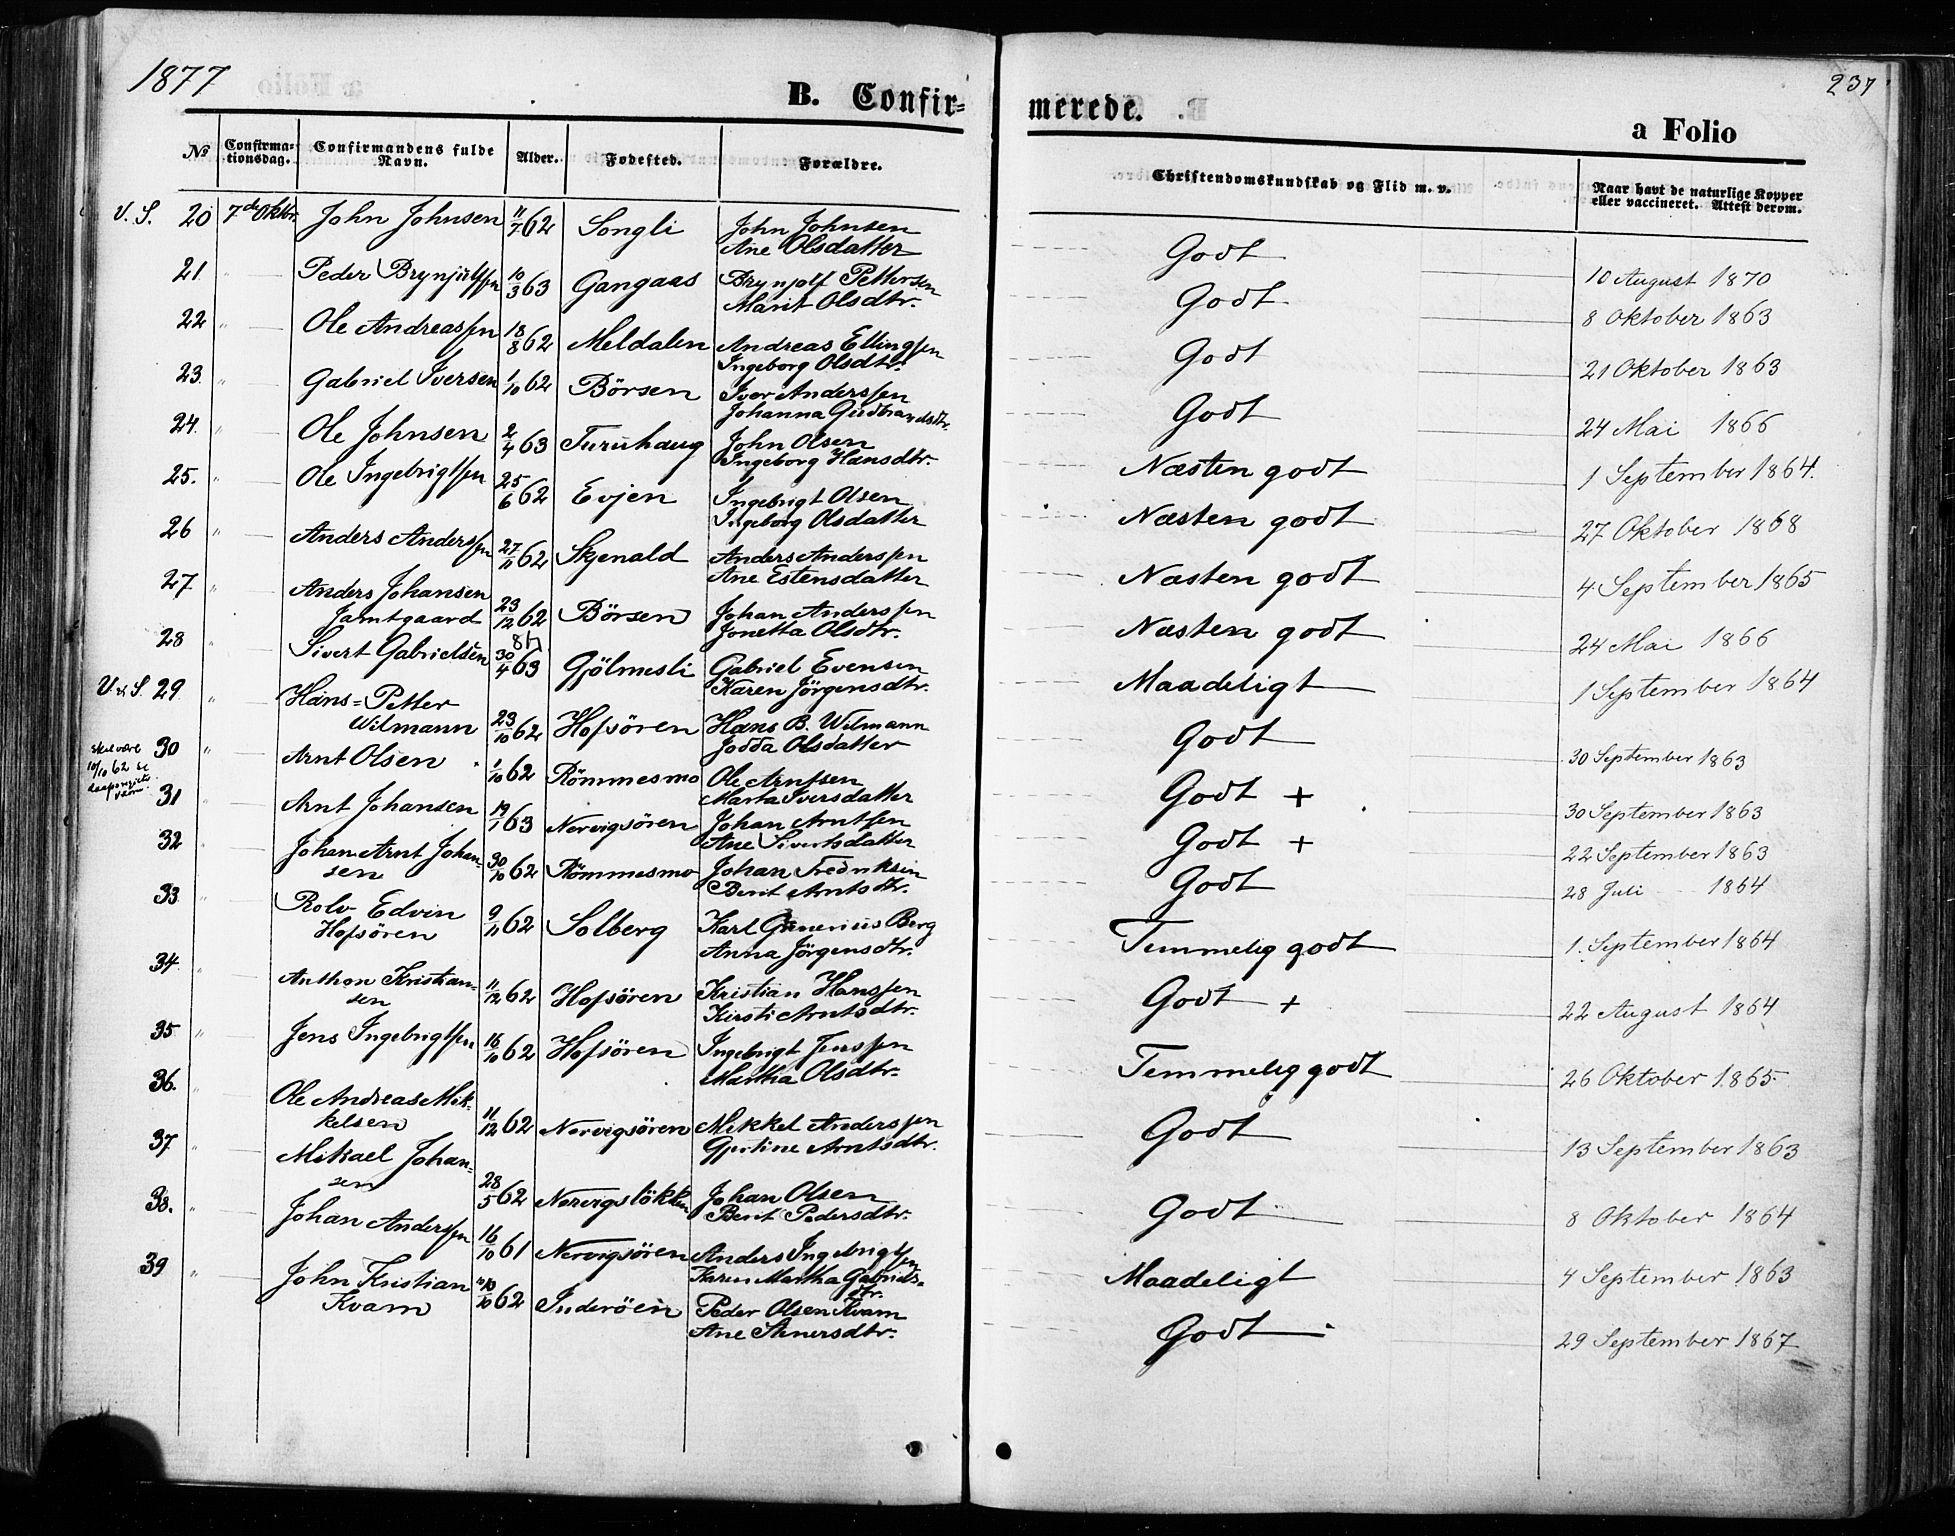 1877
B. Confir-
№ Confirma-tionsdag. Confirmandens fulde Navn. Alder. Fødested. Forældre.
V. S. 20 7de Oktbr. John Johnsen 11/7 62 Songli John Johnsen
Ane Olsdatter
21 " Peder Brynjulfsen 10/3 63 Gangaas Brynjolf Pettersen
Marit Olsdtr.
22 " Ole Andreassen 18/8 62 Meldalen Andreas Ellingsen
Ingeborg Olsdtr.
23. " Gabriel Iversen 1/10 62 Börsen Iver Anderssen
Johanna Gudbrandsdtr.
24. " Ole Johnsen 2/4 63 Furuhaug John Olsen
Ingeborg Hansdtr.
25. " Ole Ingebrigtsen 25/6 62 Evjen Ingebrigt Olsen
Ingeborg Olsdatter
26 " Anders Anderssen 27/11 62 Skjenald Anders Anderssen
Ane Estensdatter
27 " Anders Johansen
Jamtgaard 23/12 62 Börsen Johan Anderssen
Jonetta Olsdtr.
28 " Sivert Gabrielsen 30/4 63 Gjölmesli Gabriel Evensen
Karen Jörgensdtr.
V. & S. 29. " Hans-Petter
Wilmann 23/10 62 Hofsören Hans B. Wilmann
Jodda Olsdatter
skal være
10/10 62 se
30 " Arnt Olsen 1/10 62 Römmesmo Ole Arntsen
Marta Iversdatter
31 " Arnt Johansen 19/1 63 Nervigsören Johan Arntsen
Ane Sivertsdatter
32 " Johan Arnt Johan-
sen 30/10 62 Römmesmo Johan Fredriksen
Berit Arntsdtr.
33 " Rolv Edvin
Hofsören 9/11 62 Solberg Karl Gunerius Berg
Anna Jörgensdtr.
34 " Anthon Kristian-
sen 11/12 62 Hofsören Kristian Hanssen
Kirsti Arntsdtr.
35 " Jens Ingebrigtsen 16/10 62 Hofsören Ingebrigt Jenssen
Martha Olsdtr.
36. " Ole Andreas Mik-
kelsen 11/12 62 Nervigsören Mikkel Anderssen
Gjertine Arntsdtr.
37. " Mikael Johan-
sen 28/5 62 Nervigslökken Johan Olsen
Berit Pedersdtr.
38. " Johan Anderssen 16/10 61 Nervigsören Anders Ingebrigtsen
Karen Martha Gabriels-
dtr.
39 " John Kristian
Kvam 10/10 62 Inderöen Peder Olsen Kvam
Ane Stenersdtr.
237
merede.
a Folio
Christendomskundskab og Flid m. v. Naar havt de naturlige Kopper
eller vaccineret. Attest derom.
Godt 10 August 1870
Godt 8 Oktober 1863
Godt 21 Oktober 1863
Godt 24 Mai 1866
Næsten godt 1 September 1864.
Næsten godt 27 Oktober 1868
Næsten godt 4 September 1865
Næsten godt 24 Mai 1866
Maadeligt 1 September 1864
Godt 30 September 1863
Godt + 30 September 1863
Godt + 22 September 1863
Godt 28 Juli 1864
Temmelig godt 1. September 1864
Godt + 22 August 1864
Temmelig godt 26 Oktober 1865.
Godt 13 September 1863
Godt 8 Oktober 1864
Maadeligt 4 September 1863
Godt 29 September 1867